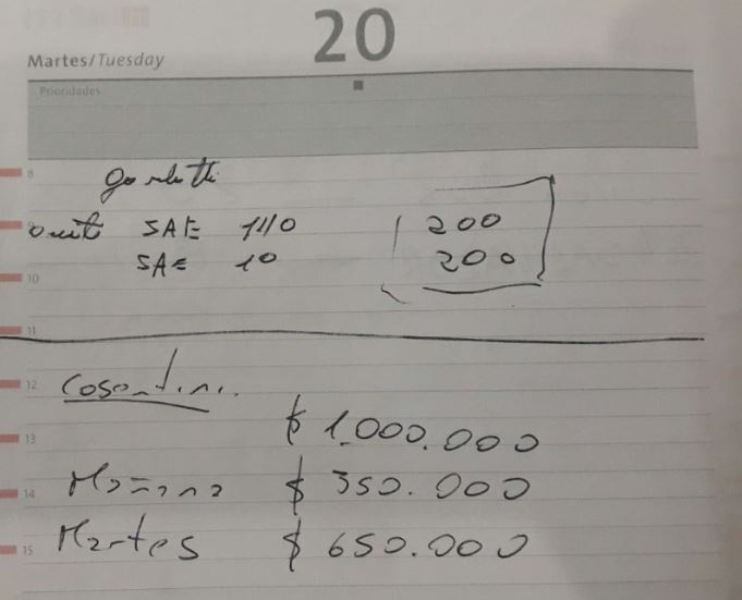 20
Martes/Tuesday
Prioridades
8
9 SAE 140 200
SAE 10 200
10
11
12 Cosentini.
$ 1.000.000
13
14 Mañana $ 350.000
15 Martes $ 650.000